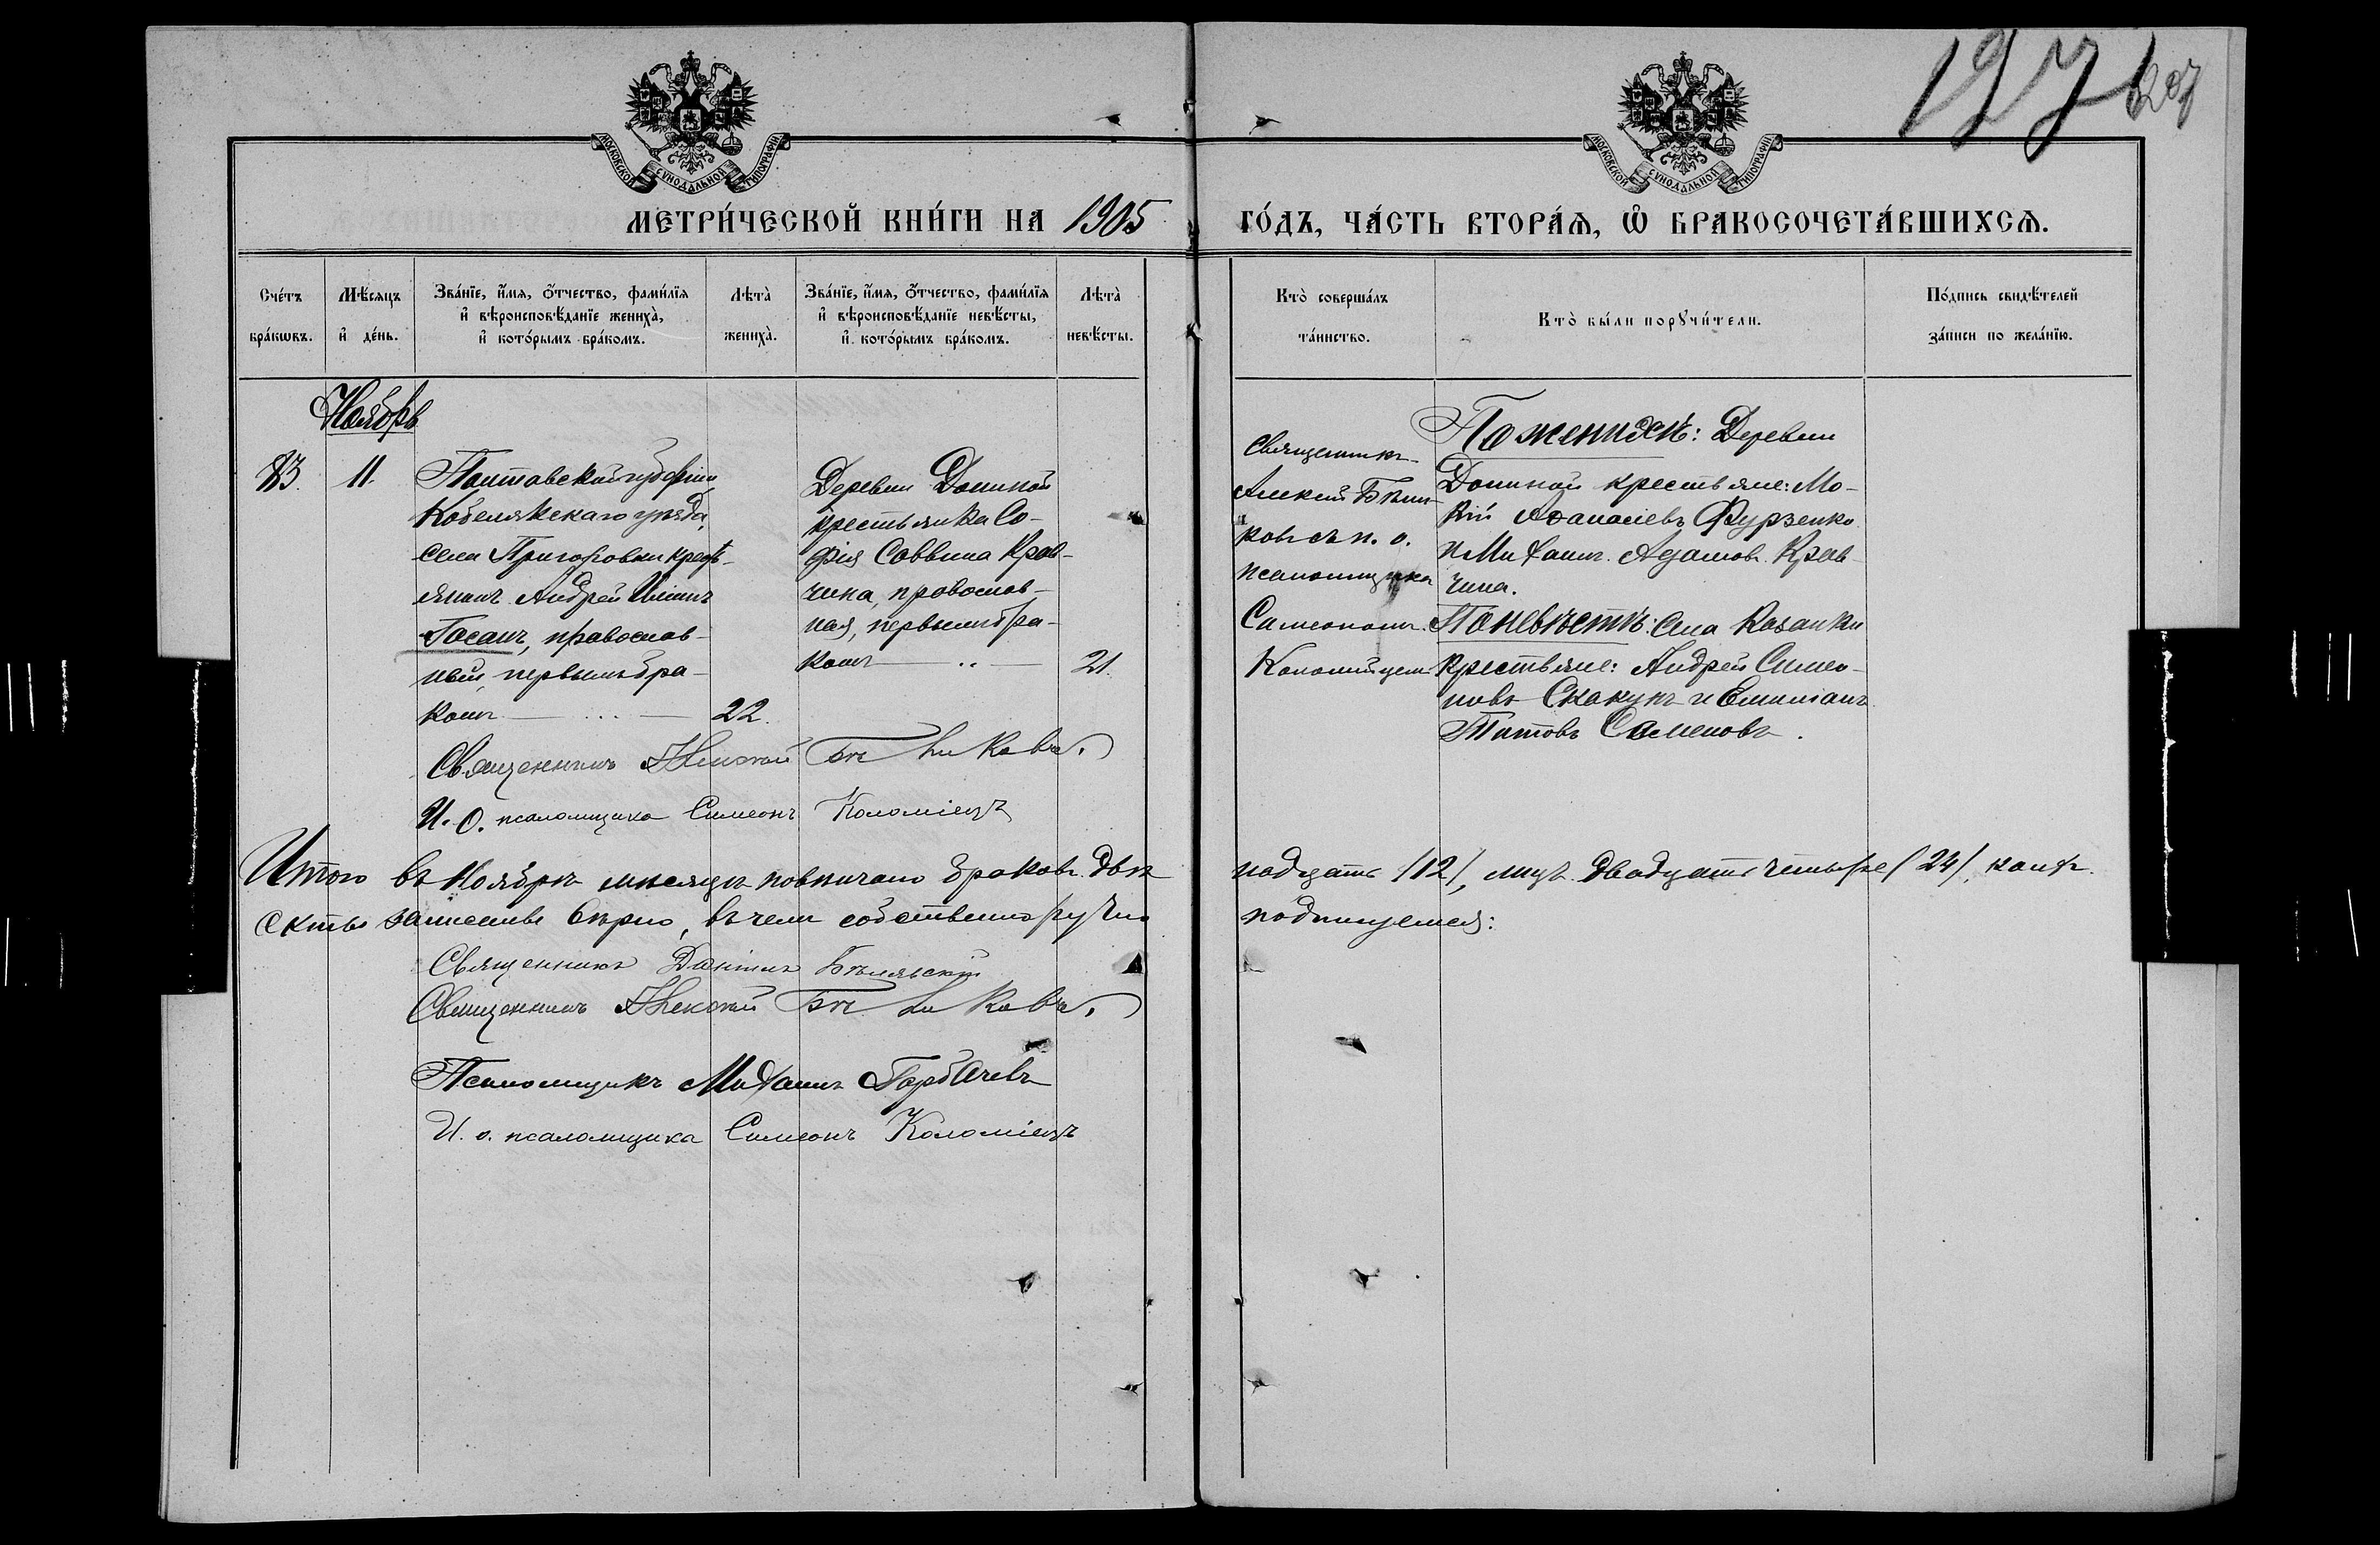 127
МОСКОВСКОЙ СѴНОДАЛЬНОЙ ТИПОГРАФІИ
МОСКОВСКОЙ СѴНОДАЛЬНОЙ ТИПОГРАФІИ
МЕТРИ́ЧЕСКОЙ КНИ́ГИ НА 1905 ГО́ДЪ, ЧА́СТЬ ВТОРА́Ѧ, Ѡ҆ БРАКОСОЧЕТА́ВШИХСѦ.
Сче́тъ бра́кѡвъ.
Мѣ́сяцъ и҆ де́нь.
Зва́нїе, и҆́мѧ, ѻ҆́тчество, фами́лїѧ
и҆ вѣроисповѣ́данїе жениха̀,
и҆ кото́рымъ бра́комъ.
Лѣта̀ жениха̀.
Зва́нїе, и҆́мѧ, ѻ҆́тчество, фами́лїѧ
и҆ вѣроисповѣ́данїе невѣ́сты,
и҆ кото́рымъ бра́комъ.
Лѣта̀ невѣ́сты.
Кто̀ соверша́лъ
та́инство.
Кто̀ бы́ли порꙋчи́тели.
По́дпись свидѣ́телей
за́писи по жела́нїю.
Ноябрь
83. 11.
Полтавской губерніи
Кобелякскаго уѣзда,
села Григоровки кресть-
янинъ Андрей
Госанъ, православ-
ный, первымъ бра-
комъ 22.
Деревни Дониной
крестьянка Со-
фія Саввина Крав-
чина, православ-
ная, первымъ бра-
комъ 21.
Священникъ
Алексій Бѣли-
ковъ съ и. о.
псаломщика
Симеономъ
Коломійцемъ
По женихѣ: Деревни
Дониной крестьяне: Мо-
кій Аѳанасіевъ Фурзенко
и Михаилъ Адамовъ Крав-
чина.
По невѣстѣ: села Казанки
крестьяне: Андрей Симео-
новъ Скакунъ и Емиліанъ
Титовъ Семеновъ.
Священникъ Алексій Бѣликовъ.
И. О. псаломщика Симеонъ Коломіецъ
Итого въ Ноябрѣ мѣсяцѣ повѣнчано браковъ двѣ надцать /12/, лицъ двадцать четыре /24/, каков.
акты записаны вѣрно, въ чемъ собственноручно подпишемся:
Священникъ Даніилъ Бѣлявскій
Священникъ Алексій Бѣликовъ.
Псаломщикъ Михаилъ Горбачевъ
И. о. псаломщика Симеонъ Коломіецъ